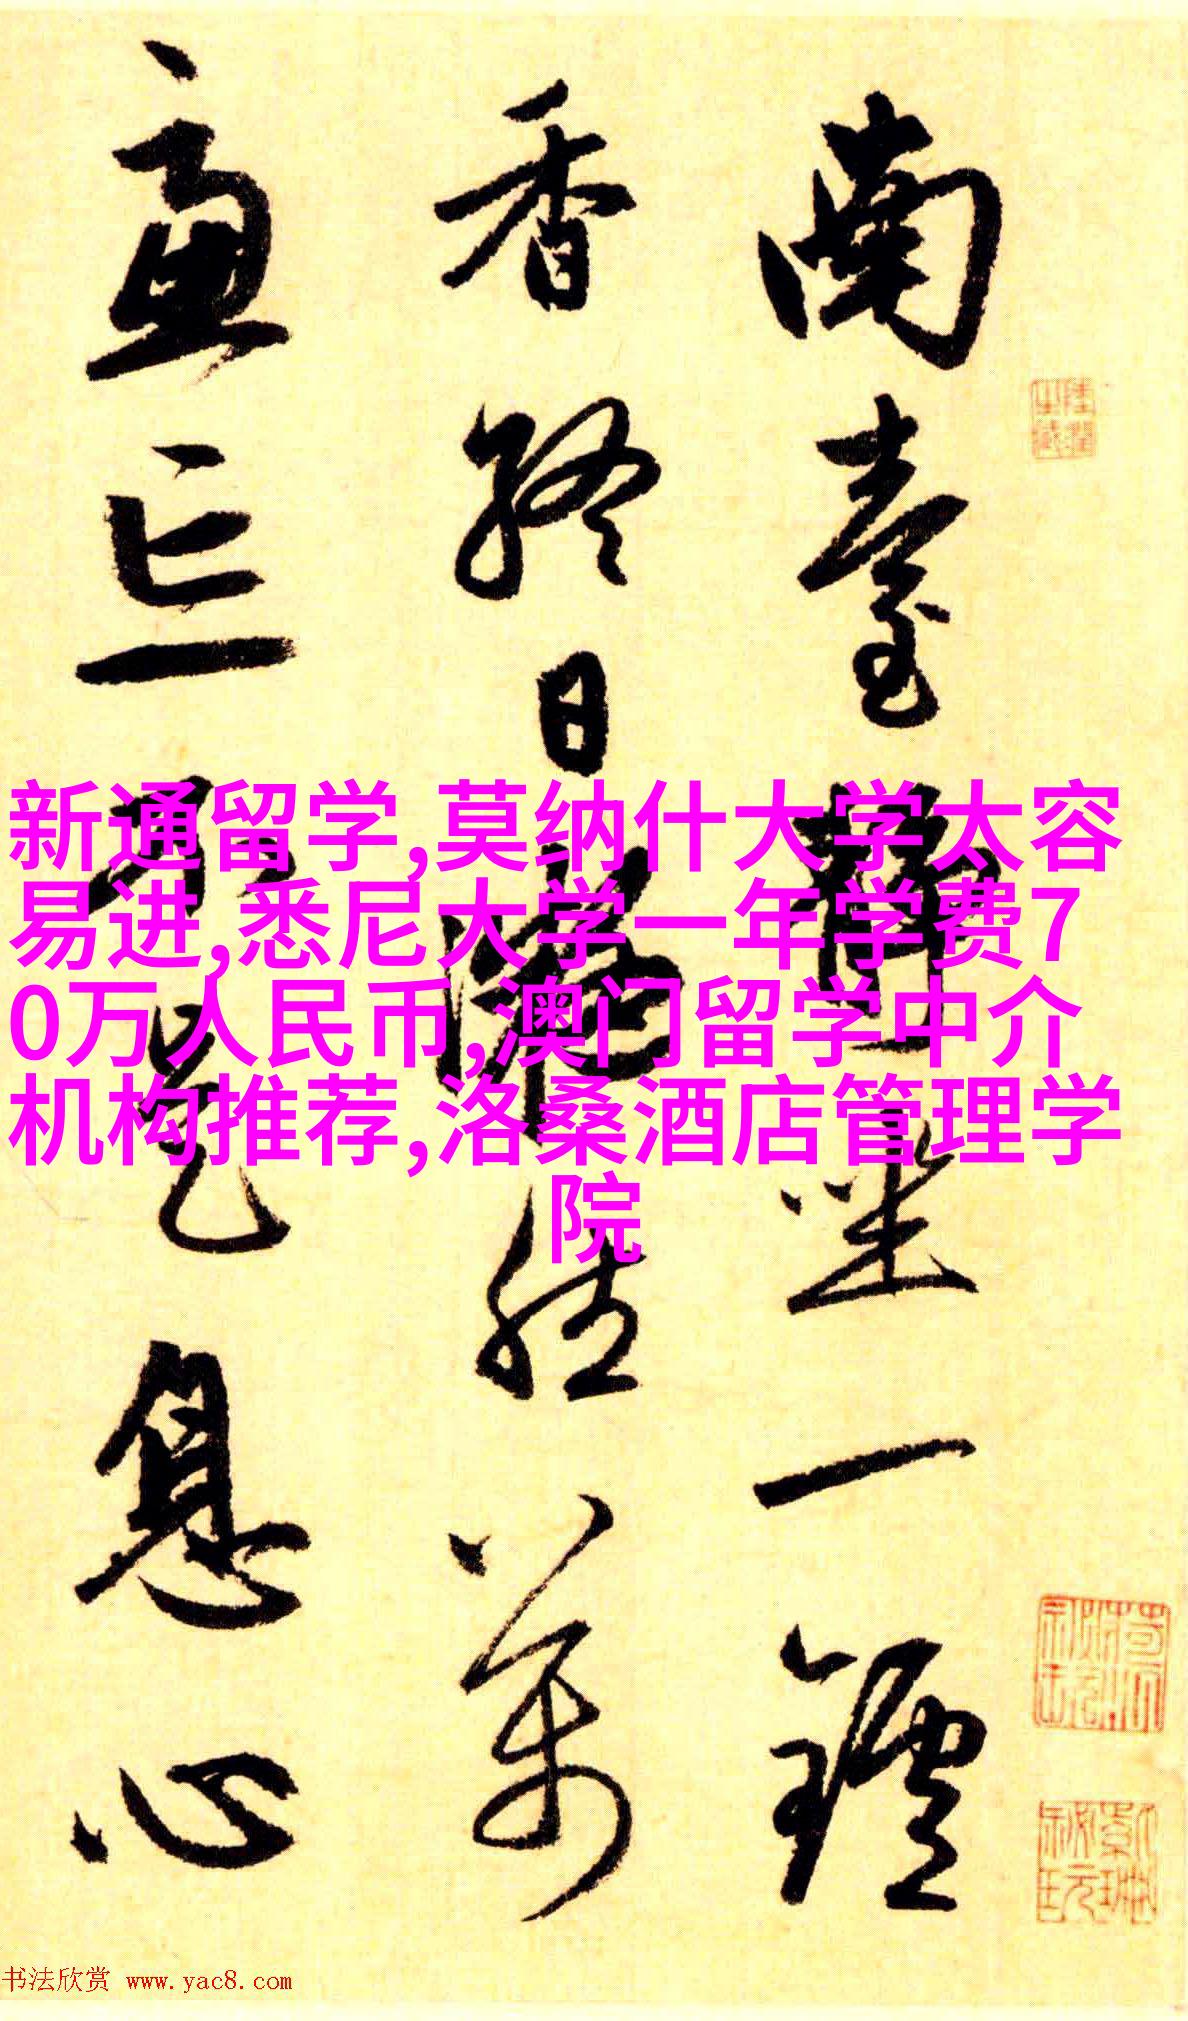 南臺靜坐一鑪
香終日凝然萬
慮忘不是息心
新通留学,莫纳什大学太容
易进,悉尼大学一年学费7
0万人民币,澳门留学中介
机构推荐,洛桑酒店管理学
院
书法欣赏 www.yac8.com